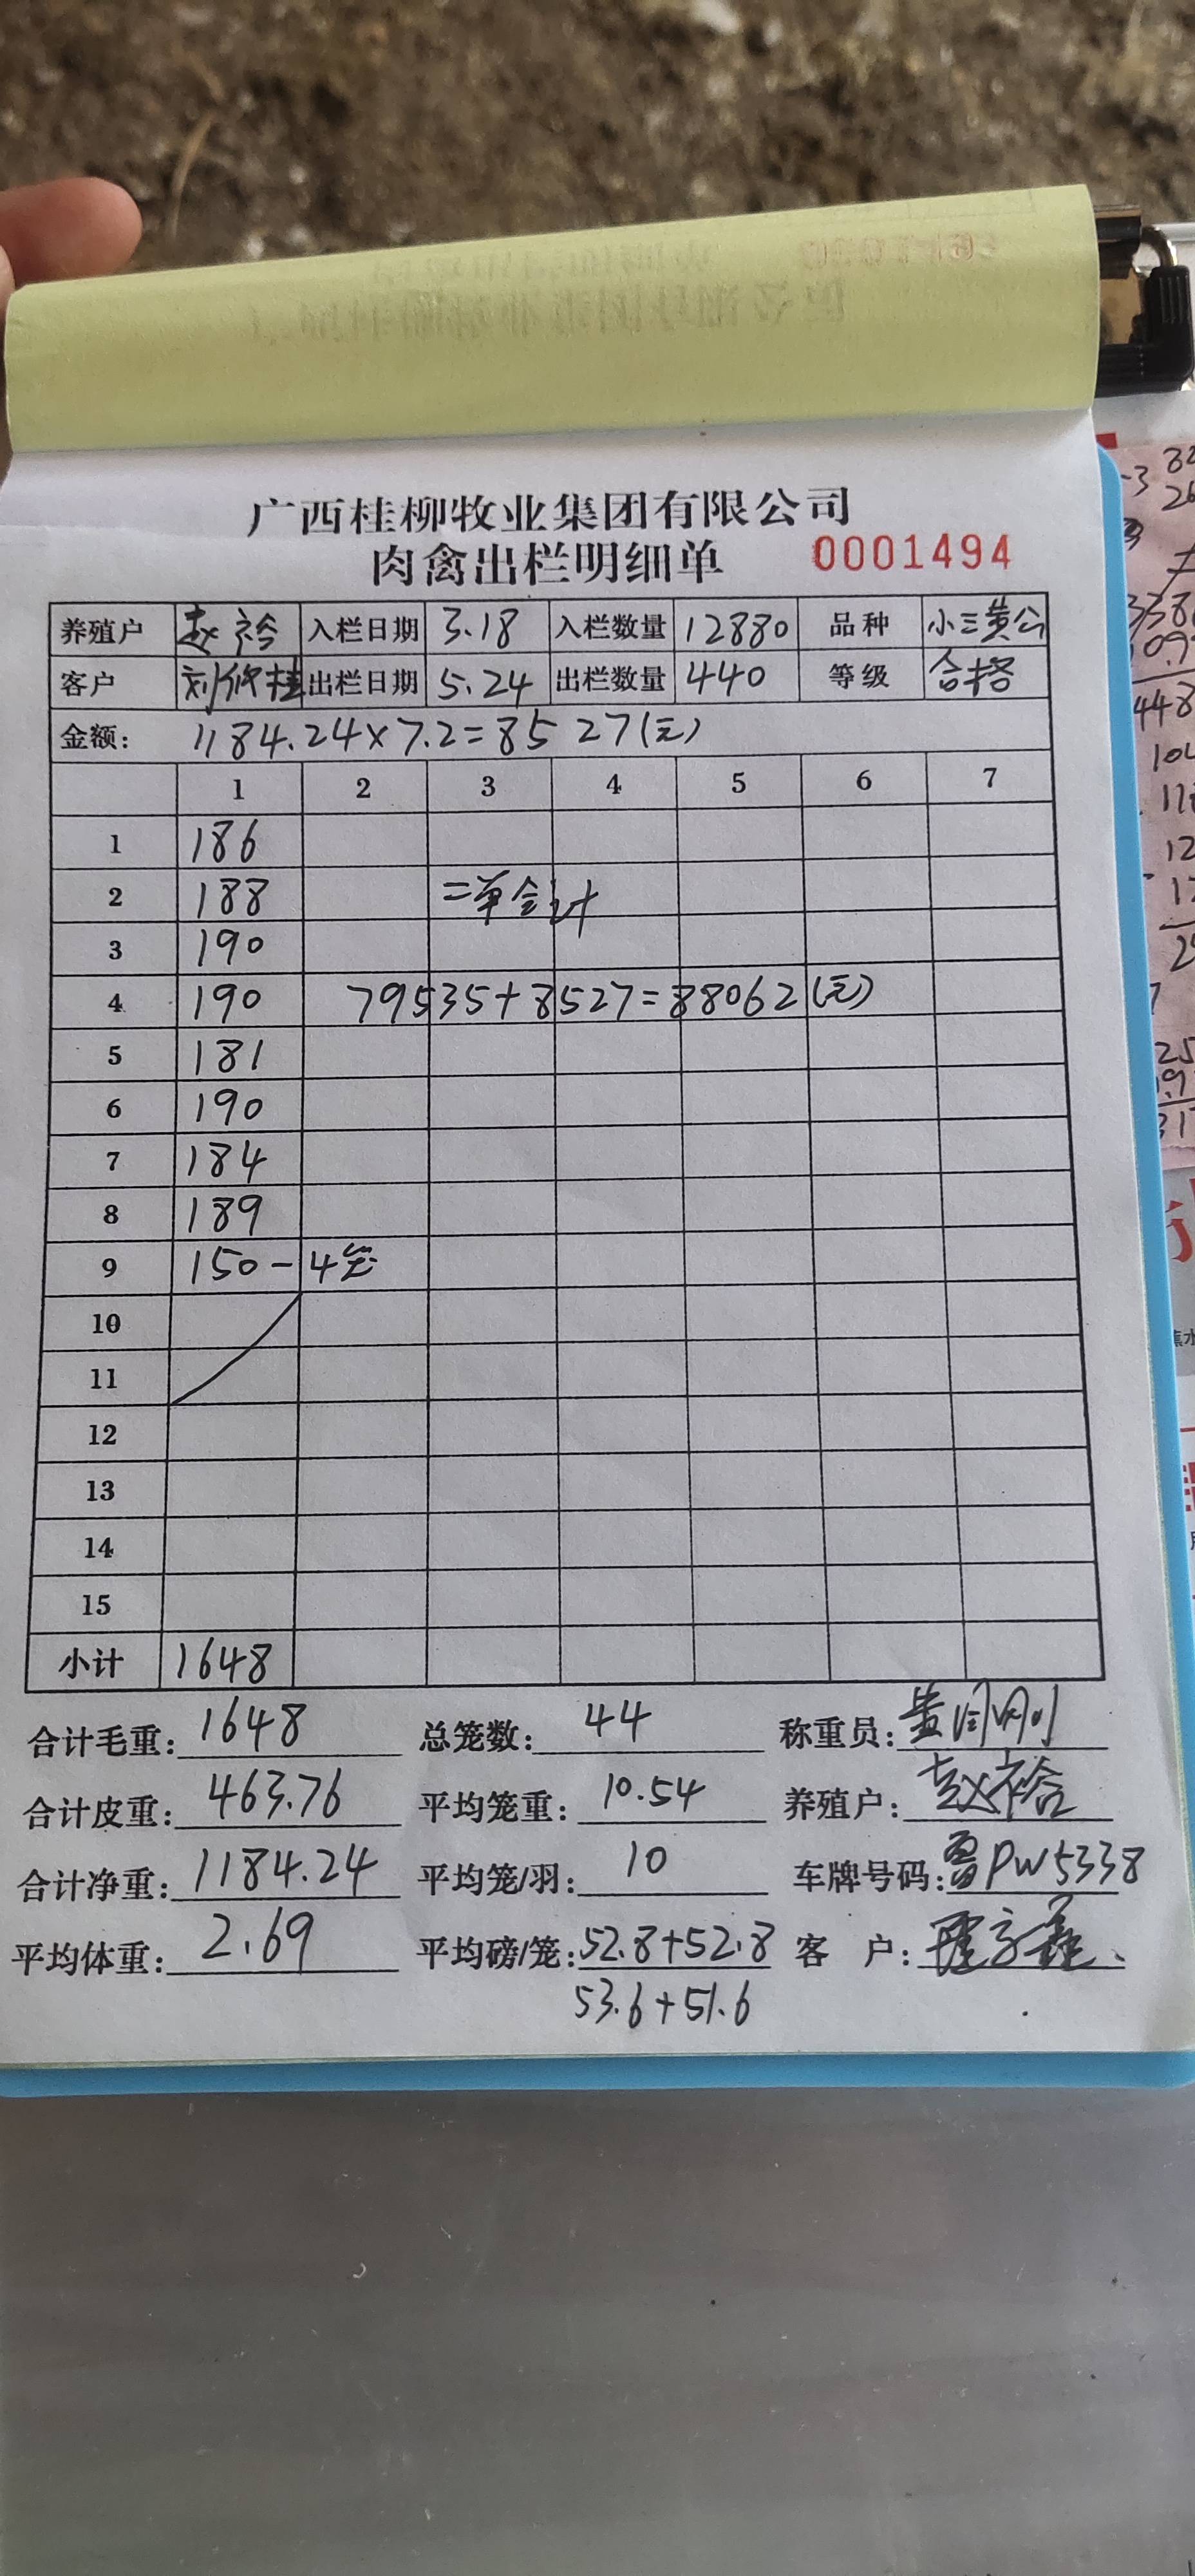 广西桂柳牧业集团有限公司
肉禽出栏明细单 0001494
养殖户 赵裕 入栏日期 3.18 入栏数量 12880 品种 小三黄公
客户 出栏日期 5.24 出栏数量 440 等级 合格
金额: 1184.24×7.2=8527(元)
1 2 3 4 5 6 7
1 186
2 188 二单合计
3 190
4 190 79535+8527=88062(元)
5 181
6 190
7 184
8 189
9 150-4笼
10
11
12
13
14
15
小计 1648
合计毛重: 1648 总笼数: 44 称重员:
合计皮重: 463.76 平均笼重: 10.54 养殖户: 赵裕
合计净重: 1184.24 平均笼/羽: 10 车牌号码: 鲁PW5338
平均体重: 2.69 平均磅/笼: 52.8+52.8 客户:
53.6+51.6